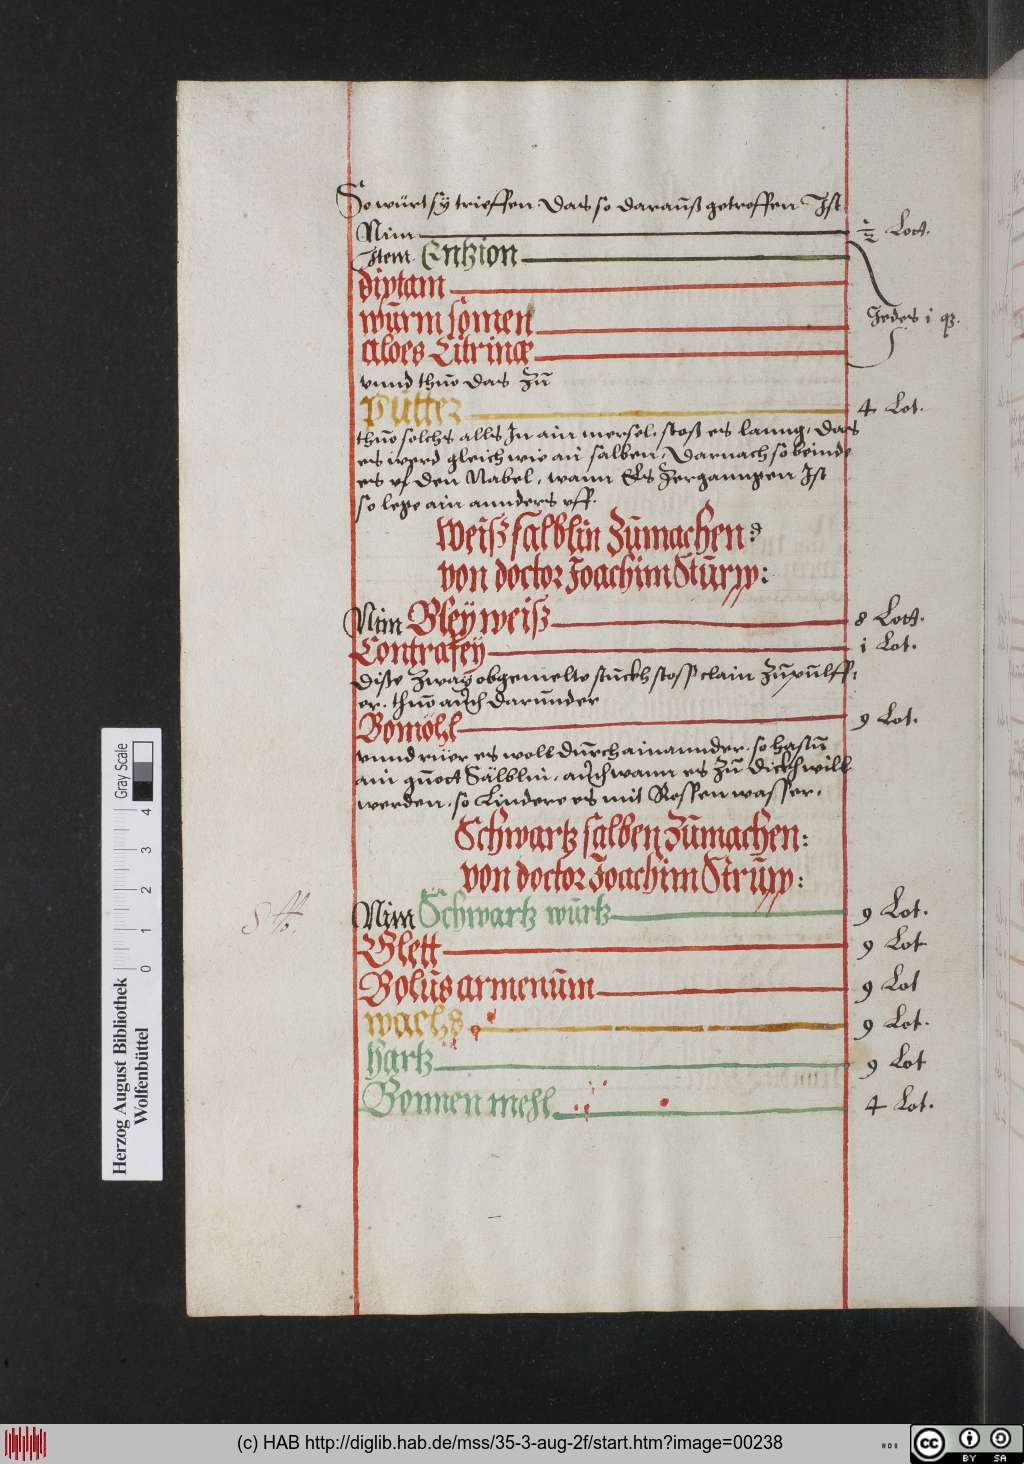 So würt sÿ trieffen das so daraŭß getroffen Ist
Nim ½ Lott.
Item Entzion
diptam
wŭrm somen Jedes i q.
aloes Citrinæ
vnnd thŭo das zŭ
Pŭtter 4 Lot.
thŭo solchs alls In ain mersel. stoß es lanng, das
es werd gleich wie ain salben, Darnach so beinds
es vf den Nabel, wann Es Zerganngen Ist
so lege ain annders vff.
Weiß sälblin Zŭmachen:
von doctor Joachim Stŭrpp:
Nim Bleÿ weiß 8 Lott.
Contrafey i Lot.
diße Zway obgemelte stŭckh stoss clain Zŭ pŭlff,
er. thŭo aŭch darŭnder
Bomöhl 9 Lot.
vnnd rüer es woll dŭrch ainannder. so hastŭ
ain gŭott Sälblin, aŭch wann es Zŭ dickh will
werden, so Lindere es mit Rossen wasser,
Schwartz salben Zŭmachen:
von doctor Joachim Strŭpp:
Nim Schwartz wŭrtz 9 Lot.
Glett 9 Lot
Bolŭs armenŭm 9 Lot
wachs 9 Lot.
hartz 9 Lot
Bonnen mehl 4 Lot.
Herzog August Bibliothek
Wolfenbüttel
0 1 2 3 4
Gray Scale
(c) HAB http://diglib.hab.de/mss/35-3-aug-2f/start.htm?image=00238
cc BY SA